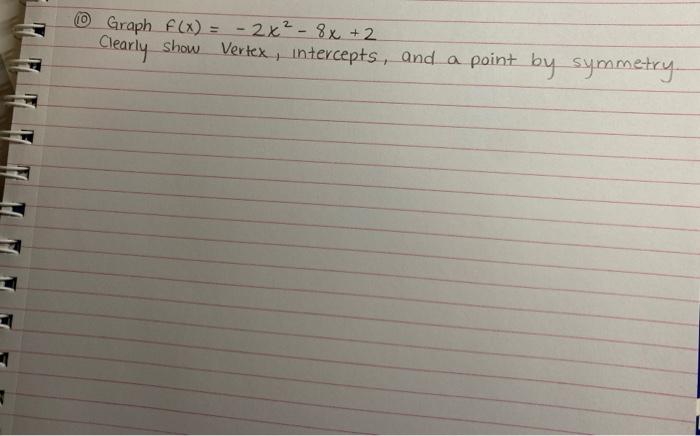 ⑩ Graph f(x) = -2x² - 8x + 2
Clearly show Vertex, intercepts, and a point by symmetry